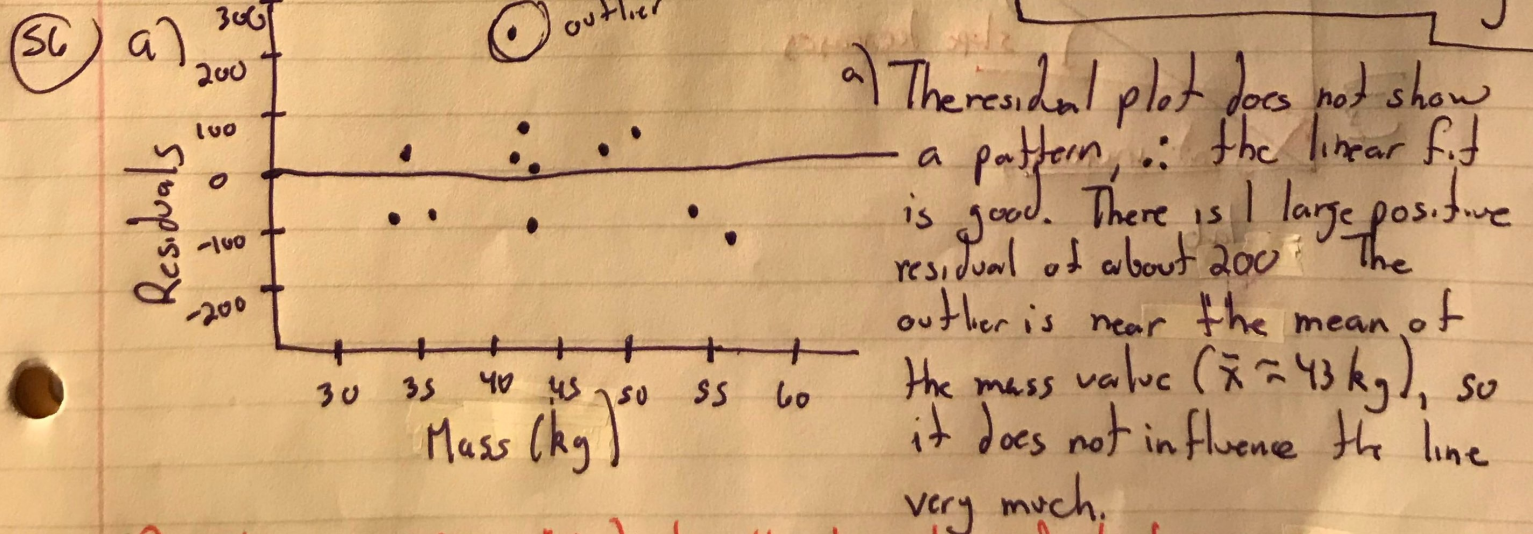 56 a)
300
outlier
200
100
0
-100
-200
Residuals
30 35 40 45 50 55 60
Mass (kg)
a) The residual plot does not show
a pattern, ∴ the linear fit
is good. There is 1 large positive
residual of about 200 The
outlier is near the mean of
the mass value (x̄ ≈ 43 kg), so
it does not influence the line
very much.